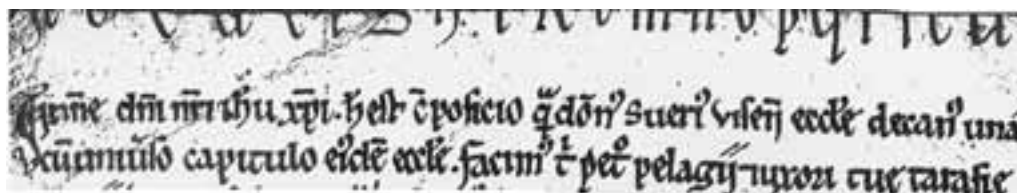 dn̄i nr̄i ih̄u xp̄i. h̄ est c̄posicio qᵃ dōn⁹ Sueri⁹ visen̄ eccl̄e decan⁹ una
cū uniūso capitulo ei⁹dē eccl̄e. facim⁹ t̄ petº pelagij uxori tue tarasie